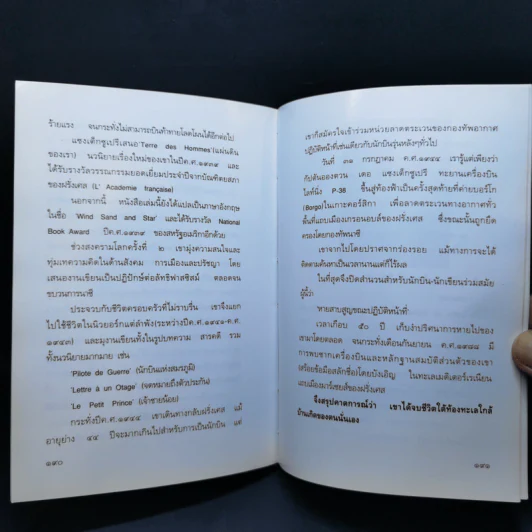 ร้ายแรง จนกระทั่งไม่สามารถบินท้าทายโลดโผนได้อีกต่อไป
แซงเต็กซูเปรีเสนอ 'Terre des Hommes' (แผ่นดิน
ของเรา) นวนิยายเรื่องใหม่ของเขาในปีค.ศ.๑๙๓๙ และ
ได้รับรางวัลวรรณกรรมยอดเยี่ยมประจำปีจากบัณฑิตยสภา
ของฝรั่งเศส (L' Academie française)
นอกจากนี้ หนังสือเล่มนี้ยังได้แปลเป็นภาษาอังกฤษ
ในชื่อ 'Wind Sand and Star' และได้รับรางวัล National
Book Award ปีค.ศ.๑๙๓๙ ของสหรัฐอเมริกาอีกด้วย
ช่วงสงครามโลกครั้งที่ ๒ เขามุ่งความสนใจและ
ทุ่มเทความคิดในด้านสังคม การเมืองและปรัชญา โดย
เสนองานเขียนเป็นปฏิปักษ์ต่อลัทธิฟาสซิสม์ ตลอดจน
ขบวนการนาซี
ประจวบกับชีวิตครอบครัวที่ไม่ราบรื่น เขาจึงแยก
ไปใช้ชีวิตในนิวยอร์กแต่ลำพัง(ระหว่างปีค.ศ.๑๙๔๑-ค.ศ.
๑๙๔๓) และมุงานเขียนทั้งในรูปบทความ สารคดี รวม
ทั้งนวนิยายมากมาย เช่น
'Pilote de Guerre' (นักบินแห่งสมรภูมิ)
'Lettre à un Otage' (จดหมายถึงตัวประกัน)
'Le Petit Prince' (เจ้าชายน้อย)
กระทั่งปีค.ศ.๑๙๔๔ เขาเดินทางกลับฝรั่งเศส แม้
อายุย่าง ๔๔ ปีจะมากเกินไปสำหรับการเป็นนักบิน แต่
๑๙๐
เขาก็สมัครใจเข้าร่วมหน่วยลาดตระเวนของกองทัพอากาศ
ปฏิบัติหน้าที่เช่นเดียวกับนักบินรุ่นหลังๆทั่วไป
วันที่ ๓๑ กรกฎาคม ค.ศ.๑๙๔๔ เรารู้แต่เพียงว่า
กัปตันอองตวน เดอ แซงเต็กซูเปรี ทะยานเครื่องบิน
ไลท์นิ่ง P-38 ขึ้นสู่ท้องฟ้าเป็นครั้งสุดท้ายที่ค่ายบอร์โก
(Borgo)ในเกาะคอร์สิกา เพื่อลาดตระเวนทางอากาศทั่ว
พื้นที่แถบเมืองเกรอนอบล์ของฝรั่งเศส ซึ่งขณะนั้นถูกยึด
ครองโดยกองทัพนาซี
เขาจากไปโดยปราศจากร่องรอย แม้ทางการจะได้
ติดตามค้นหาเป็นเวลานานแต่ก็ไร้ผล
ในที่สุดจึงปิดสำนวนสำหรับนักบิน-นักเขียนร่วมสมัย
ผู้นี้ว่า
'หายสาบสูญขณะปฏิบัติหน้าที่'
เวลาเกือบ ๕๐ ปี เก็บงำปริศนาการหายไปของ
เขามาโดยตลอด จนกระทั่งเดือนกันยายน ค.ศ.๑๙๙๘ มี
การพบซากเครื่องบินและหลักฐานสมบัติส่วนตัวของเขา
(สร้อยข้อมือสลักชื่อ)โดยบังเอิญ ในทะเลเมดิเตอร์เรเนียน
แถบเมืองมาร์เซยส์ของฝรั่งเศส
จึงสรุปคาดการณ์ว่า เขาได้จบชีวิตใต้ท้องทะเลใกล้
บ้านเกิดของตนนั่นเอง
๑๙๑